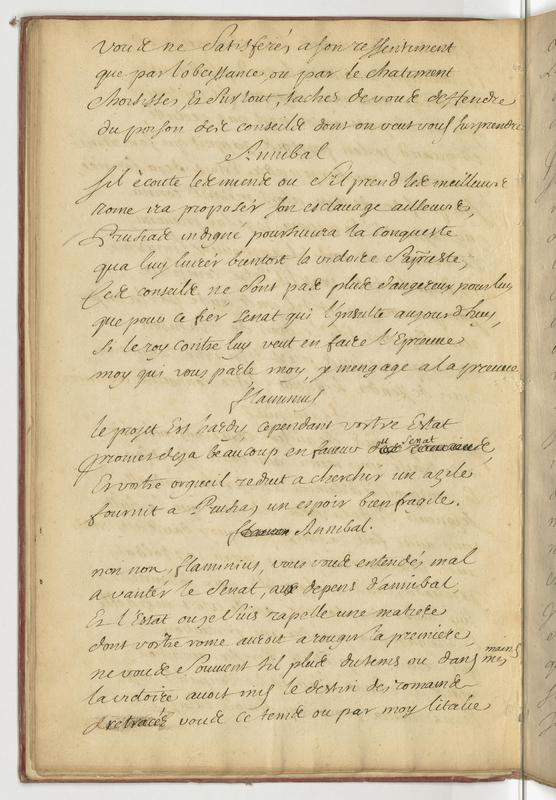 vous ne satisferés a son ressentiment
que par l'obeissance, ou par le chatiment
choisissés, Et surtout, tachés de vous deffendre
du poison des conseils dont on veut vous surprendre
Annibal
sil écoute les miens ou s'il prend les meilleurs
rome ira proposer son esclavage ailleurs,
Prusias indigné poursuivra la conqueste
qua luy livrer bientost la victoire s'apreste,
Ces conseils ne sont pas plus dangereux pour luy
que pour ce fier senat qui l'insulte aujourdhuy,
si le roy contre luy veut en faire l'Epreuve
moy qui vous parle moy, je mengage a la preuve
flaminius
le projet Est hardy, cependant vostre Estat
promet deja beaucoup en faveur du senat
Et vostre orgueil reduit a chercher un azile
fournit a Prusias un espoir bien fragile.
Annibal.
non non, flaminius, vous vous entendés mal
a vanter le senat, aux depens d'annibal,
Et l'Estat ou je suis rapelle une matiere
dont vostre rome auroit a rougir la premiere,
ne vous souvient il plus du tems ou dans mes mains
la victoire avoit mis le destin des romains
retracés vous ce tems ou par moy l'italie